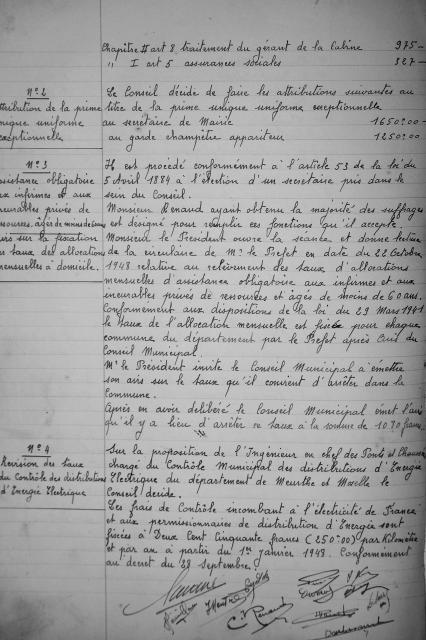 Chapitre II art 8, traitement du gérant de la Cabine 975 —
" I art 5 assurances sociales 327 —
N° 2
Attribution de la prime
unique uniforme
exceptionnelle
Le Conseil décide de faire les attributions suivantes au
titre de la prime unique uniforme exceptionnelle
au secrétaire de Mairie 1650.00
au garde champêtre appariteur 1250.00
N° 3
assistance obligatoire
aux infirmes et aux
incurables privés de
ressources, âgés de moins de 60 ans
avis sur la fixation
du taux des allocations
mensuelles à domicile.
Il est procédé conformément à l'article 53 de la loi du
5 Avril 1884 à l'élection d'un secrétaire pris dans le
sein du Conseil.
Monsieur Renaud ayant obtenu la majorité des suffrages
est désigné pour remplir ces fonctions qu'il accepte.
Monsieur le Président ouvre la séance et donne lecture
de la circulaire de Mr le Préfet en date du 22 Octobre
1948 relative au relèvement des taux d'allocations
mensuelles d'assistance obligatoire aux infirmes et aux
incurables privés de ressources et âgés de moins de 60 ans.
Conformément aux dispositions de la loi du 29 Mars 1941
le taux de l'allocation mensuelle est fixée pour chaque
commune du département par le Préfet après avis du
Conseil Municipal.
Mr le Président invite le Conseil Municipal à émettre
son avis sur le taux qu'il convient d'arrêter dans la
Commune.
Après en avoir délibéré le Conseil Municipal émet l'avis
qu'il y a lieu d'arrêter ce taux à la somme de 1070 francs.
N° 4
Révision des taux
du Contrôle des distributions
d'Energie Electrique
Sur la proposition de l'Ingénieur en chef des Ponts et Chaussées
chargé du Contrôle Municipal des distributions d'Energie
Electrique du département de Meurthe et Moselle le
Conseil décide.
Les frais de Contrôle incombant à l'électricité de France
et aux permissionnaires de distribution d'Energie sont
fixées à Deux Cent Cinquante francs (250.00) par Kilomètre
et par an à partir du 1er janvier 1948. Conformément
au décret du 28 septembre.
C. Renaud